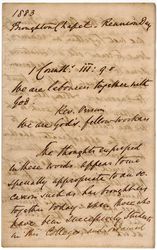 1883
Broughton Chapel. Reunion Day
1 Corinth. III: 9.
We are laborers together with
God.
Rev. Version
We are God's fellow workers
The thoughts expressed
in these words appear to me
specially appropriate to an oc
casion such as has brought us
together today - when those who
have been successively students
in this College and trained